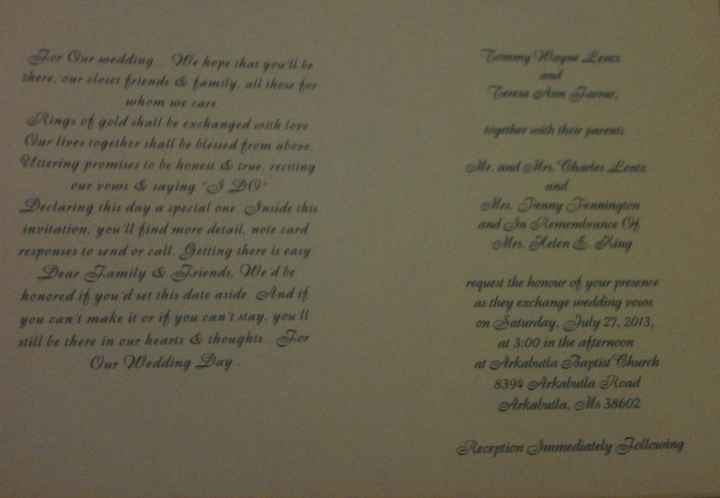 For Our wedding... We hope that you'll be
there, our closet friends & family, all those for
whom we care
Rings of gold shall be exchanged with love
Our lives together shall be blessed from above.
Uttering promises to be honest & true, reciting
our vows & saying "I DO"
Declaring this day a special one. Inside this
invitation, you'll find more detail, note card
responses to send or call. Getting there is easy
Dear Family & Friends, We'd be
honored if you'd set this date aside. And if
you can't make it or if you can't stay, you'll
still be there in our hearts & thoughts. For
Our Wedding Day...
Tommy Wayne Lentz
and
Teresa Ann
together with their parents
Mr. and Mrs. Charles Lentz
and
Mrs. Jenny Pennington
and In Remembrance Of
Mrs. Helen E. King
request the honour of your presence
as they exchange wedding vows
on Saturday, July 27, 2013,
at 3:00 in the afternoon
at Arkabutla Baptist Church
8394 Arkabutla Road
Arkabutla, Ms 38602
Reception Immediately Following